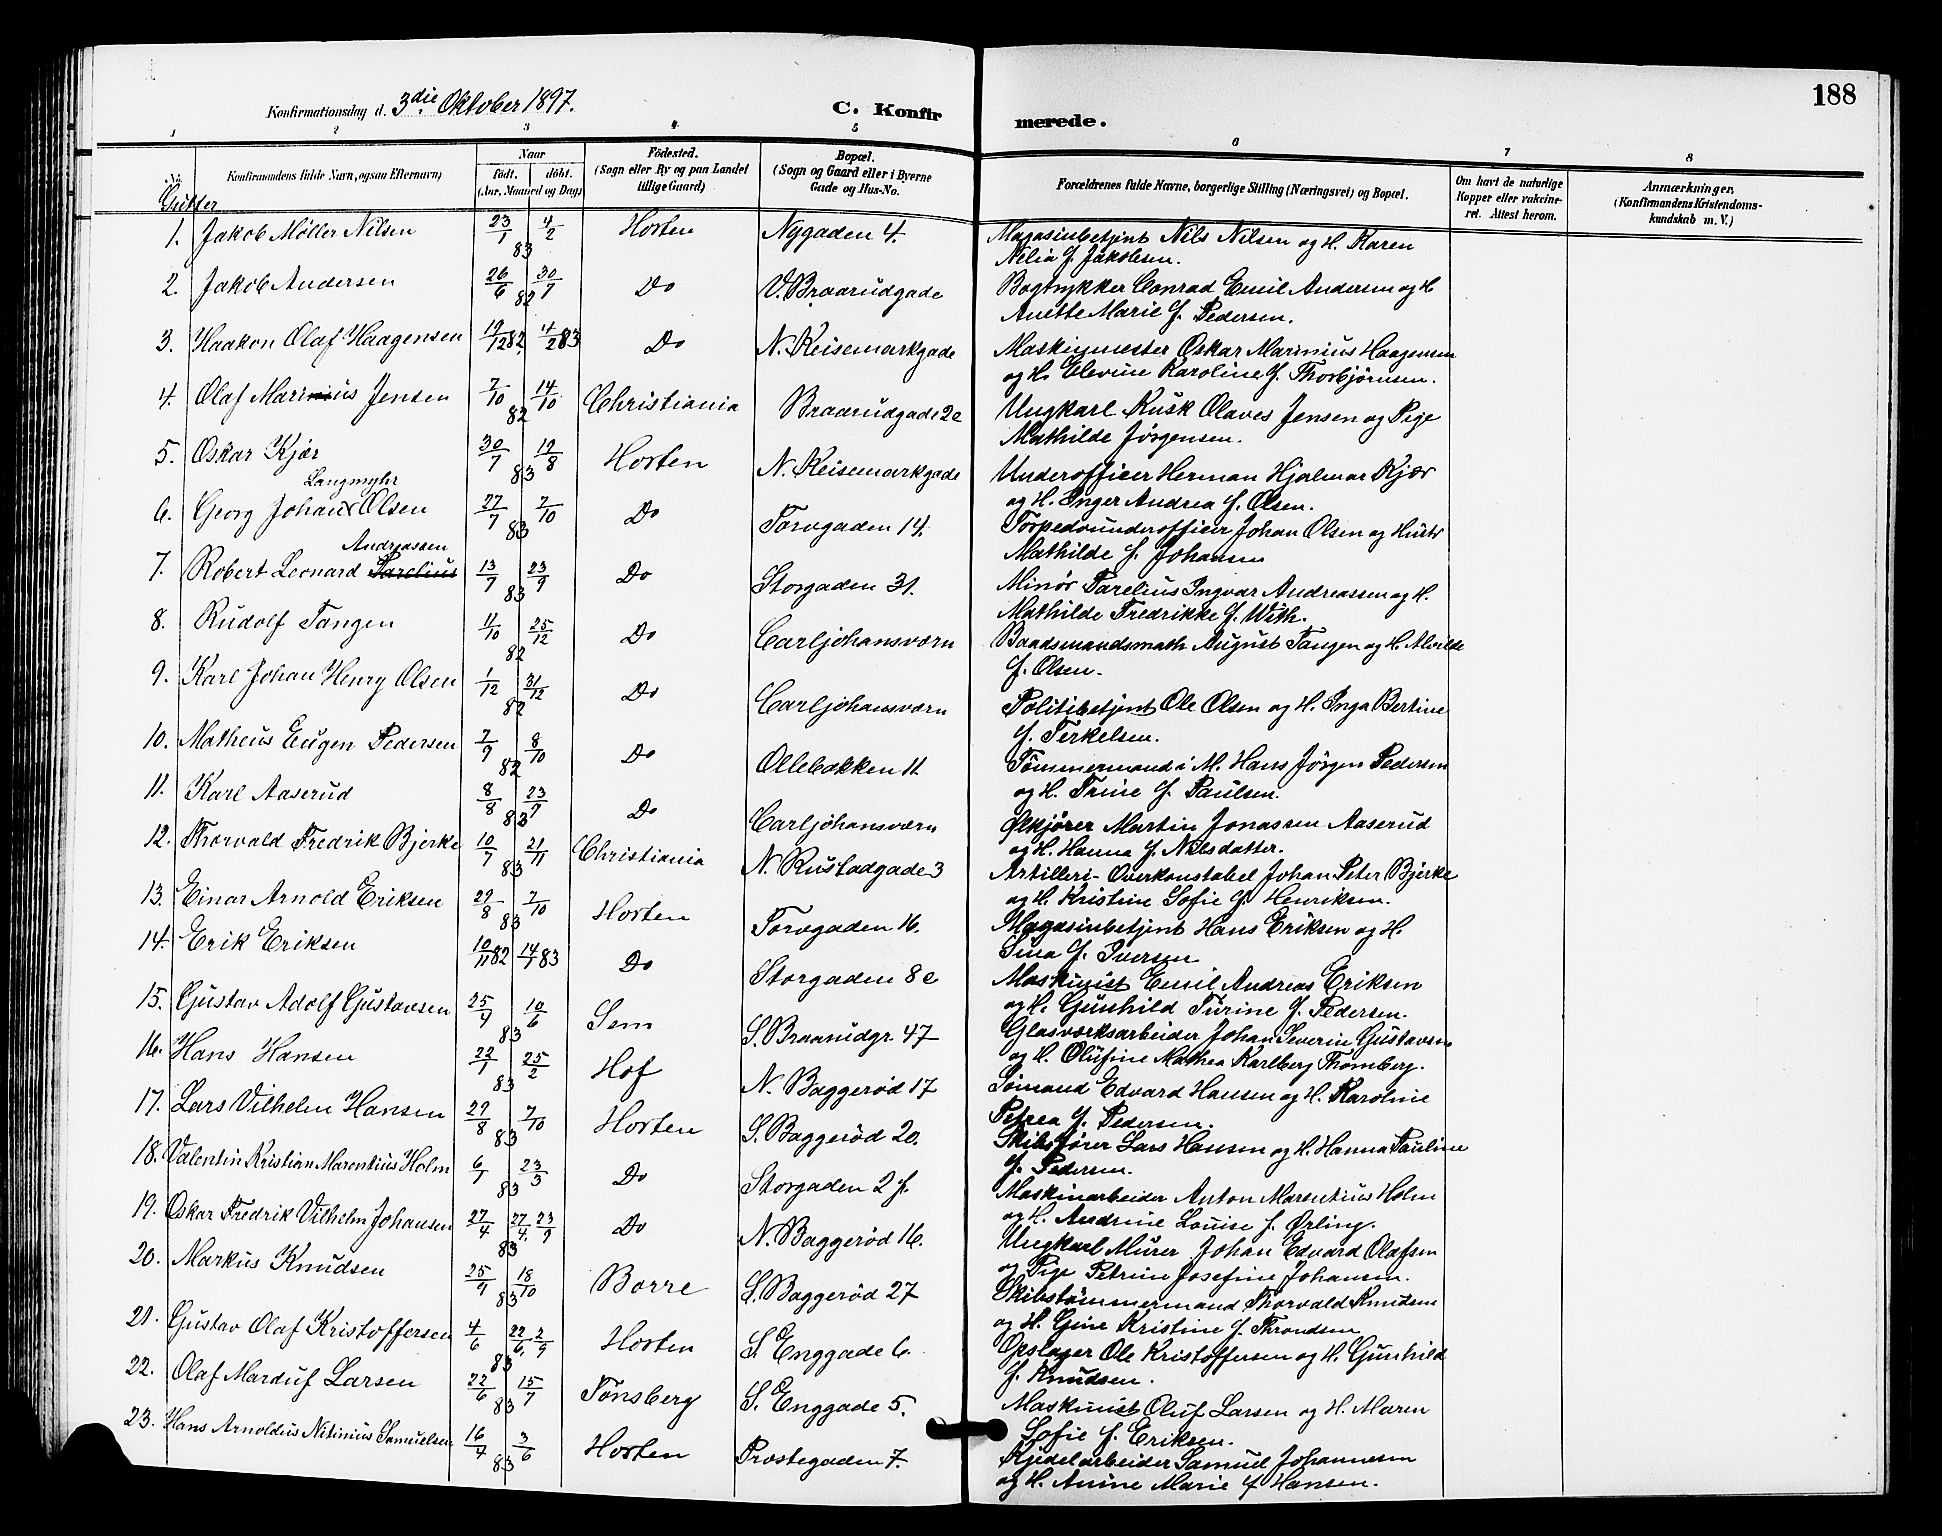 188
Konfirmationsdag d. 3die Oktober 1897. C. Konfirmerede.
1 2 3 4 5 6 7 8
No. Konfirmandens fulde Navn, ogsaa Efternavn) Naar født. døbt. (Aar, Maaned og Dag) Fødested. (Sogn eller By og paa Landet tillige Gaard) Bopæl. (Sogn og Gaard eller i Byerne Gade og Hus-No. Forældrenes fulde Navne, borgerlige Stilling (Næringsvei) og Bopæl. Om havt de naturlige Kopper eller vaccineret. Attest herom. Anmærkninger, (Konfirmandens Kristendomskundskab m. V.)
Gutter
1. Jakob Møller Nilsen 23/1 83 4/2 Horten Nygaden 4. Magasinbetjent Nils Nilsen og H. Karen
Nelia f. Jakobsen.
2. Jakob Andersen 26/6 82 30/7 Do V. Braarudgade Bogtrykker Conrad Emil Andersen og H
Anette Marie f. Pedersen.
3. Haakon Olaf Haagensen 19/12 82. 4/2 83 Do N. Keisemarkgade Maskinmester Oskar Marinius Haagensen
og H. Elevine Karoline f. Thorbjørnsen.
4. Olaf Marinius Jensen 7/10 82 14/10 Christiania Braarudgade 2c Ungkarl Kusk Olaves Jensen og Pige
Mathilde Jørgensen.
5. Oskar Kjær 30/7 83 19/8 Horten N. Keisemarkgade Underofficer Herman Hjalmar Kjær
og H. Inger Andrea f. Olsen.
Langmyhr
6. Georg Johan Olsen 27/7 83 7/10 Do Torvgaden 14. Torpedounderofficer Johan Olsen og Hustr
Mathilde f. Johansen
Andreassen
7. Robert Leonard Tarelius 13/7 83 23/9 Do Storgaden 31. Minør Tarelius Ingvar Andreassen og H.
Mathilde Fredrikke f. With.
8. Rudolf Tangen 11/10 82 25/12 Do Carljohansværn Baadsmandsmath August Tangen og H. Alvilde
f. Olsen.
9. Karl Johan Henry Olsen 1/12 82 31/12 Do Carljohansværn Politibetjent Ole Olsen og H. Inga Bertine
f. Terkelsen.
10. Matheus Eugen Pedersen 7/9 82 8/10 Do Ollebakken 11. Tømmermand i M. Hans Jørgen Pedersen
og H. Trine f. Paulsen.
11. Karl Aaserud 8/8 83 23/9 Do Carljohansværn Ølkjører Martin Jonassen Aaserud
og H. Hanna f. Nilsdatter.
12. Thorvald Fredrik Bjerke 10/7 83 21/11 Christiania N. Rustadgade 3 Artilleri-Overkonstabel Johan Peter Bjerke
og H. Kristine Sofie f. Henriksen.
13. Einar Arnold Eriksen 29/8 83 7/10 Horten Torvgaden 16. Magasinbetjent Hans Eriksen og H.
Sina f. Iversen
14. Erik Eriksen 10/11 82 14/1 83 Do Storgaden 8c Maskinist Emil Andreas Eriksen
og H. Gunhild Turine f. Pedersen.
15. Gustav Adolf Gustavsen 25/4 83 10/6 Sem S. Braarudgr. 47 Glasværksarbeider Johan Severin Gustavsen
og H. Olufine Mathea Karlberg Thomberg.
16. Hans Hansen 22/1 83 25/2 Hof N. Baggerød 17 Sømand Edvard Hansen og H. Karoline
Petrea f. Pedersen.
17. Lars Vilhelm Hansen 29/8 83 7/10 Horten S. Baggerød 20. Skibsfører Lars Hansen og H. Hanna Pauline
f. Pedersen.
18. Valentin Kristian Marentius Holm 6/1 83 23/3 Do Storgaden 2 f. Maskinarbeider Anton Marentius Holm
og H. Andrine Louise f. Ørling.
19. Oskar Fredrik Vilhelm Johansen 27/4 83 27/4. 23/9 Do N. Baggerød 16. Ungkarl Murer Johan Edvard Olafsen
og Pige Petrine Josefine Johansen.
20. Markus Knudsen 25/9 83 18/10 Borre S. Baggerød 27 Skibstømmermand Thorvald Knudsen
og H. Gine Kristine f. Throndsen
21. Gustav Olaf Kristoffersen 4/6 83 22/6. 2/9 Horten S. Enggade 6. Opslager Ole Kristoffersen og H. Gunhild
f. Knudsen.
22. Olaf Marduf Larsen 22/6 83 15/7 Tønsberg S. Enggade 5. Maskinist Oluf Larsen og H. Maren
Sofie f. Eriksen.
23. Hans Arnoldus Nitinius Samuelsen 16/4 83 3/6 Horten Præstegaden 7. Kjedelarbeider Samuel Johannesen
og H. Anine Marie f Hansen.